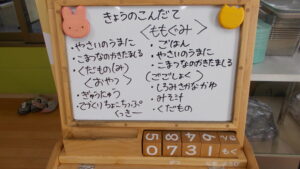 きょうのこんだて
・やさいのうまに
・こまつなのかきたまじる
・くだもの(み)
〈おやつ〉
・ぎゅうにゅう
・てづくりちょこちっぷ
くっきー
〈ももぐみ〉
・ごはん
・やさいのうまに
・こまつなのかきたまじる
(ごごしょく)
・しろみざかながゆ
・みそ汁
・くだもの